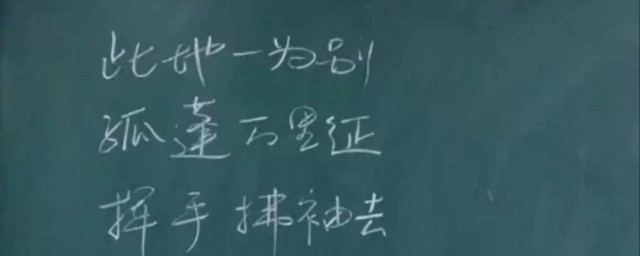 此地一为别
孤蓬万里征
挥手拂袖去